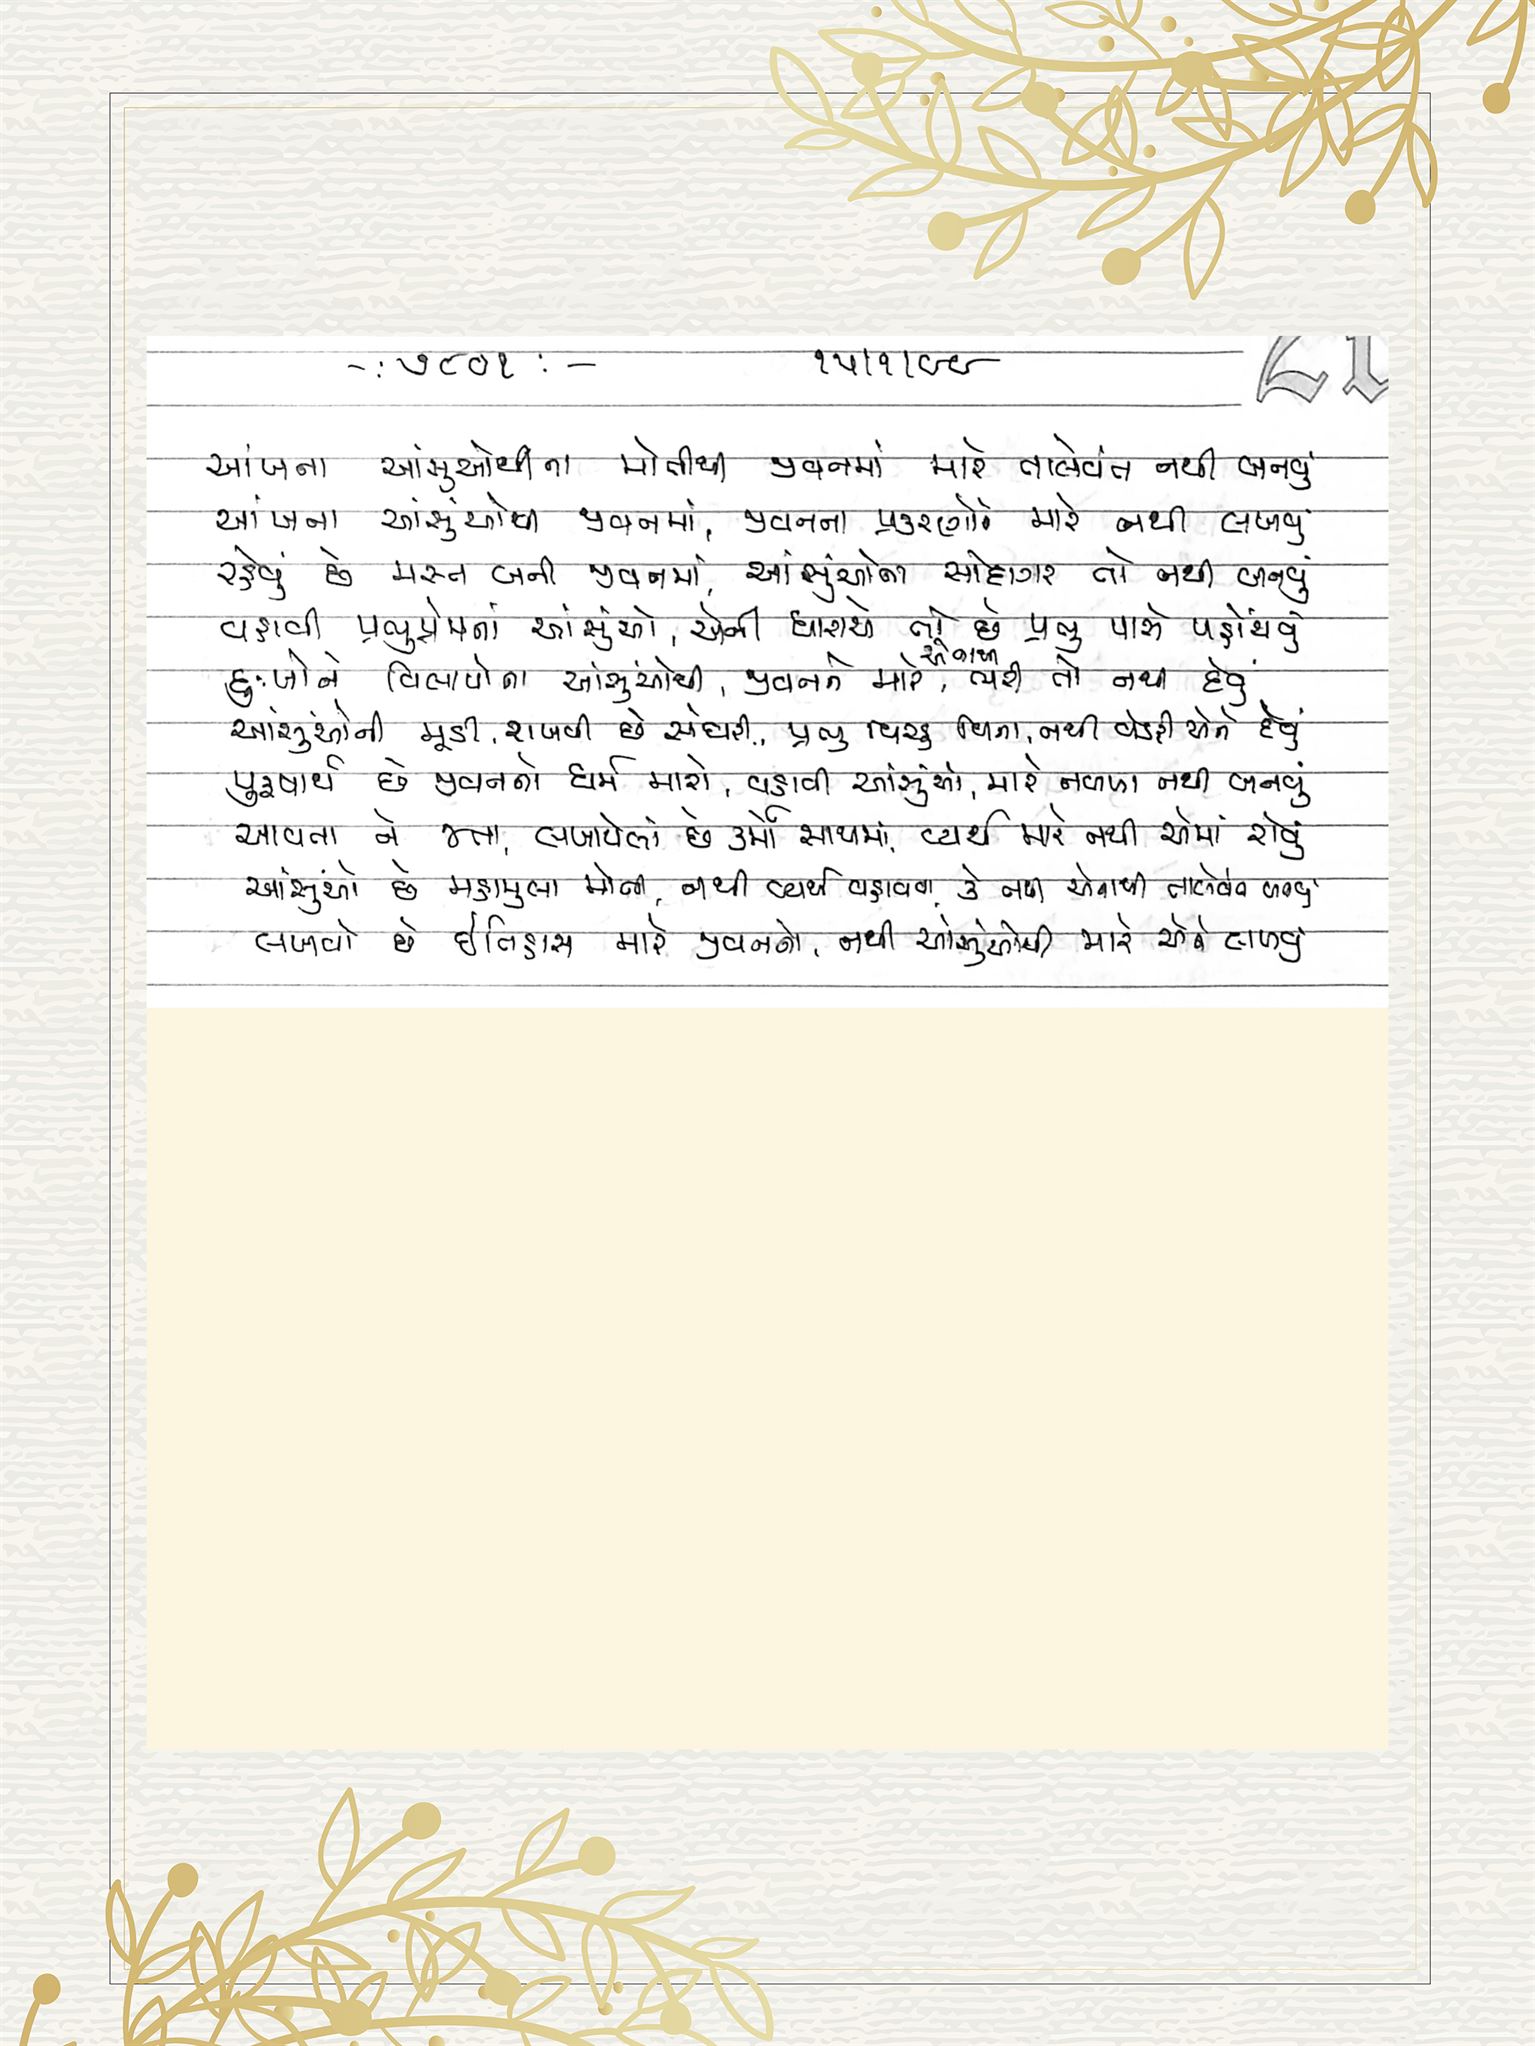 -: ૭૮૦૧ :- ૧૫/૧/૯૯
આંખના આંસુઓથીના મોતીથી જીવનમાં મારે તાલેવંત નથી બનવું
આંખના આંસુંઓથી જીવનમાં, જીવનના પ્રકરણોને મારે નથી લખવું
રહેવું છે મસ્ત બની જીવનમાં, આંસુંઓના સોદાગર તો નથી બનવું
વહાવી પ્રભુપ્રેમનાં આંસુંઓ, એની ધારાએ તો છે પ્રભુ પાસે પહોંચવું
દુઃખોને વિલાપોના આંસુંઓથી, જીવનને મારે, એનાથી ભરી તો નથી દેવું
આંસુંઓની મૂડી, રાખવી છે સંઘરી, પ્રભુ વિરહ વિના, નથી વેડફી એને દેવું
પુરૂષાર્થ છે જીવનનો ધર્મ મારો, વહાવી આંસુંઓ, મારે નબળા નથી બનવું
આવતા ને જતા, લખાયેલાં છે કર્મો સાથમાં, વ્યર્થ મારે નથી એમાં રોવું
આંસુંઓ છે મહામુલા મોતી, નથી વ્યર્થ વહાવવા, કે નથી એનાથી તાલેવંત બનવું
લખવો છે ઈતિહાસ મારે જીવનનો, નથી આંસુંઓથી મારે એને લખવું